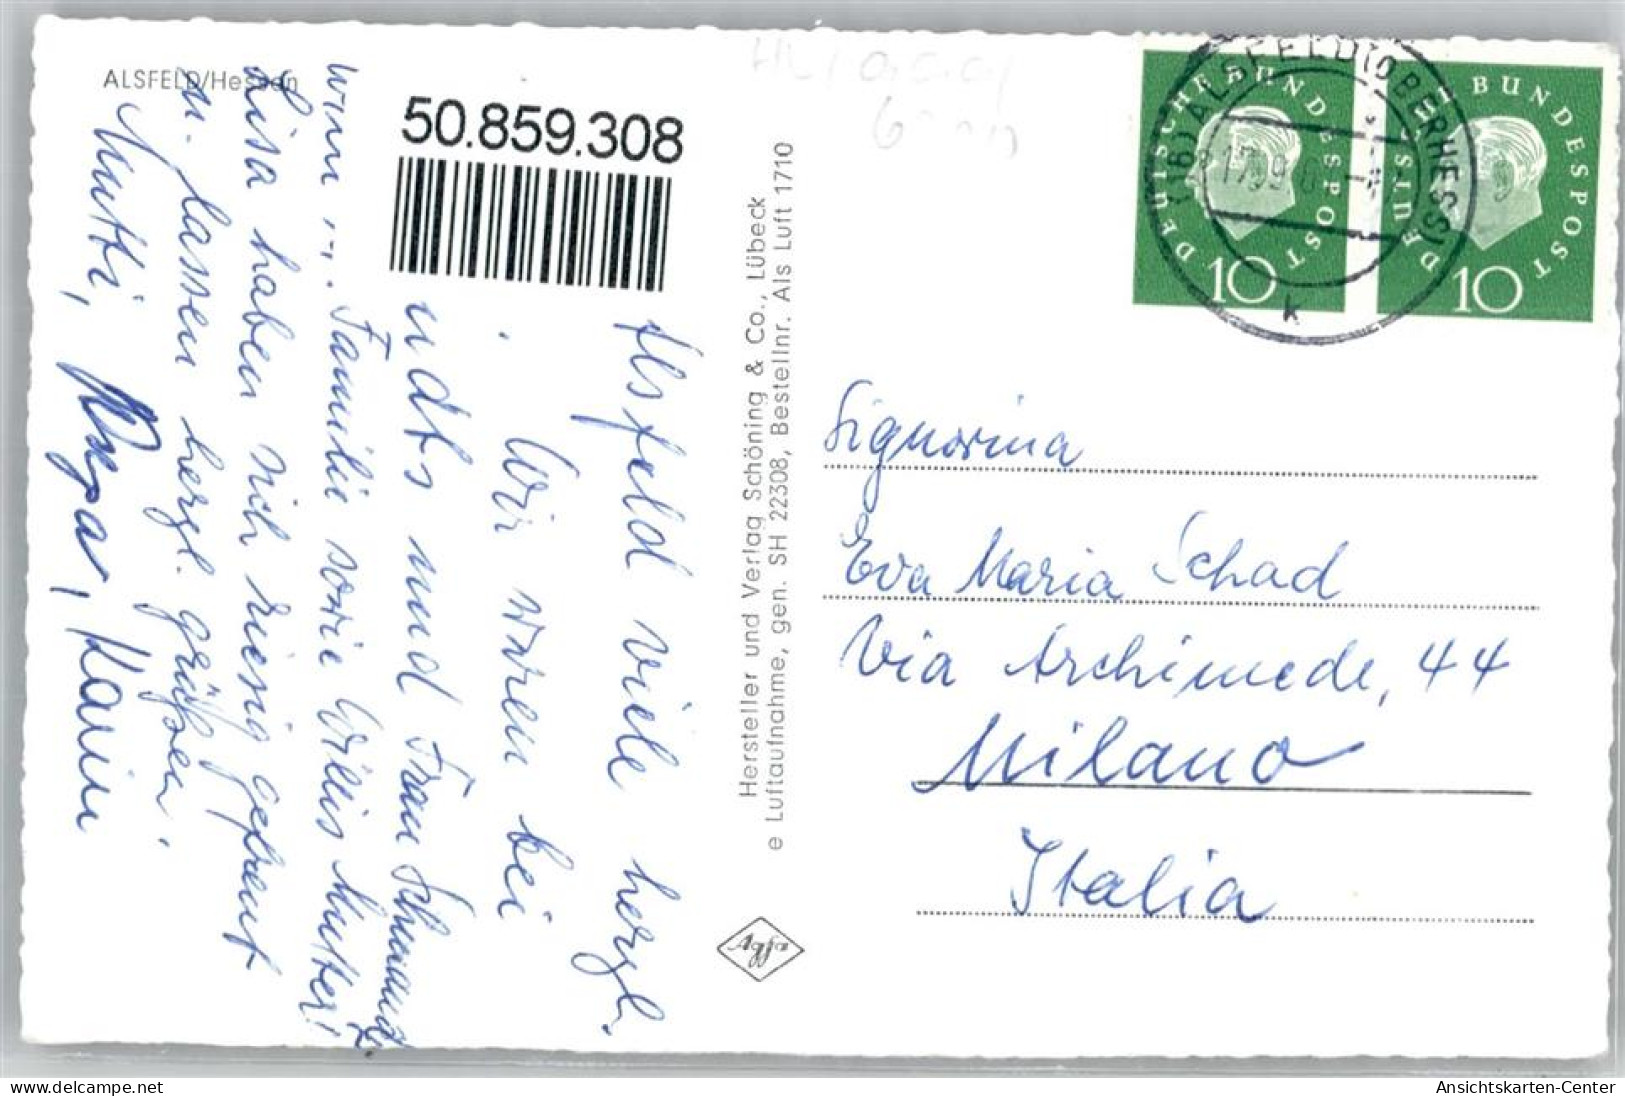 ALSFELD/Hessen
50.859.308
Alsfeld viele herzl.
Wir waren bei
und Frau Schwundt
Familie sowie Willis Mutter!
Lisa haben sich riesig gefreut
u. lassen herzl. grüßen.
Mutti, Papa, Karin
Hersteller und Verlag Schöning & Co., Lübeck
e Luftaufnahme, gen. SH 22308, Bestellnr. Als Luft 1710
Agfa
DEUTSCHE BUNDESPOST
10
DEUTSCHE BUNDESPOST
10
(16) ALSFELD (OBERHESS)
k
Signorina
Eva Maria Schad
Via Archimede, 44
Milano
Italia
Ansichtskarten-Center
www.delcampe.net